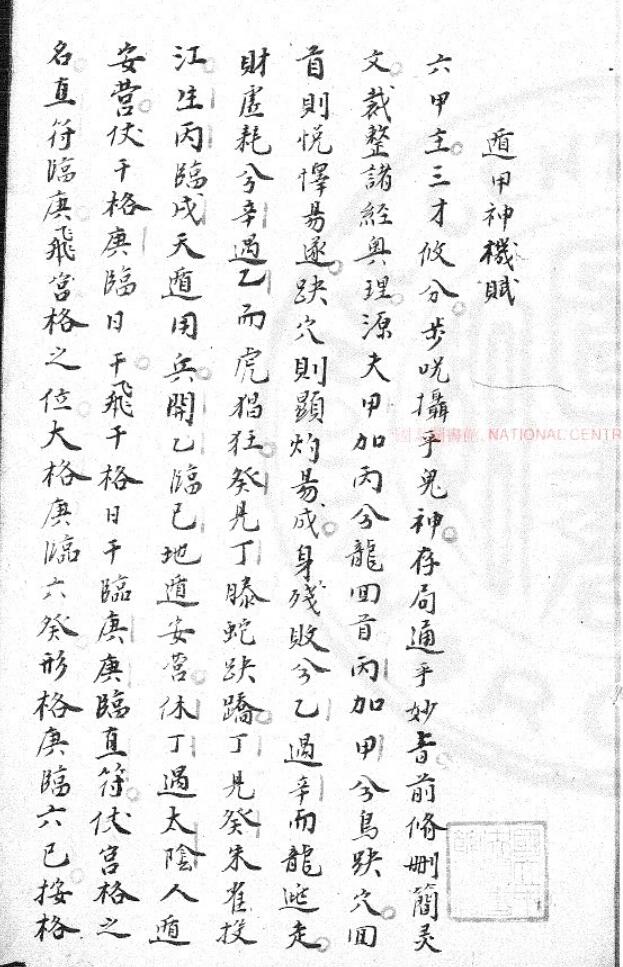 遁甲神機賦
六甲主三才攸分步呪攝乎鬼神存局通乎妙旨前脩刪簡灵
文裁整諸經奥理源夫甲加丙兮龍囬首丙加甲兮鳥跌穴囬
首則悦懌易遂跌穴則顯灼易成身殘敗兮乙遇辛而龍逃走
財虚耗兮辛遇乙而虎猖狂癸見丁滕蛇跌蹻丁見癸朱雀投
江生丙臨戌天遁用兵開乙臨己地遁安营休丁遇太陰人遁
安营伏干格庚臨日干飛干格日干臨庚庚臨直符伏宮格之
名直符臨庚飛宮格之位大格庚臨六癸形格庚臨六己按格
NATIONAL CENTR